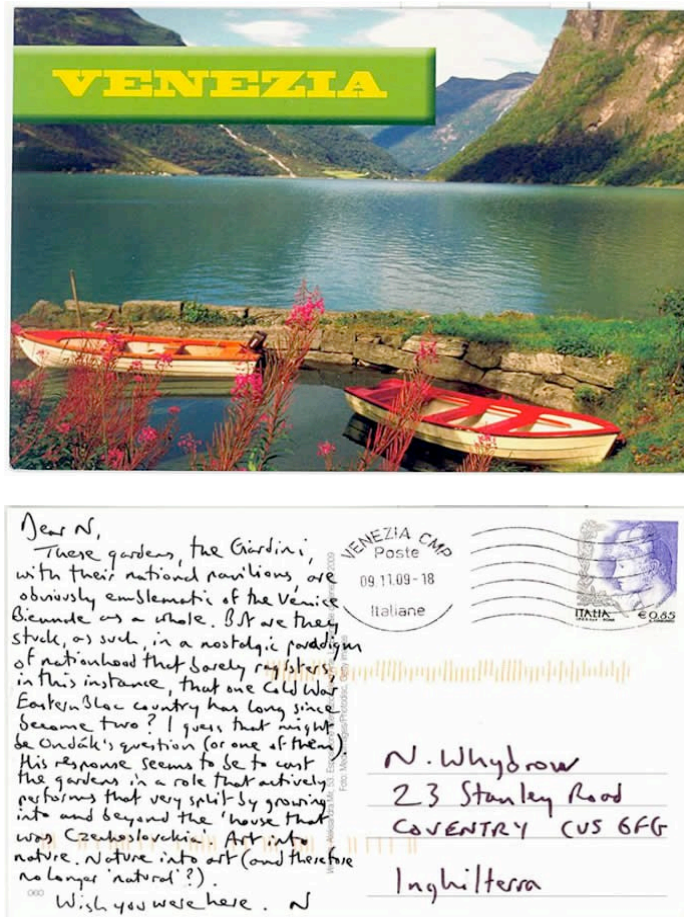 VENEZIA
Dear N,
These gardens, the Giardini,
with their national pavilions, are
obviously emblematic of the Venice
Biennale as a whole. But are they
stuck, as such, in a nostalgic paradigm
of nationhood that barely registers,
in this instance, that one Cold War
Eastern Bloc country has long since
become two? I guess that might
be Ondák's question (or one of them).
His response seems to be to cast
the gardens in a role that actively
performs that very split by growing
into and beyond the 'house that
was Czechoslovakia'. Art into
nature. Nature into art (and therefore
no longer 'natural'?).
Wish you were here. N
060
Aleksandra Mir, 53. Esposizione
2009
Foto:
Getty Images
VENEZIA CMP
Poste
09.11.09-18
Italiane
ITALIA
€0,85
N. Whybrow
23 Stanley Road
COVENTRY CV5 6FG
Inghilterra